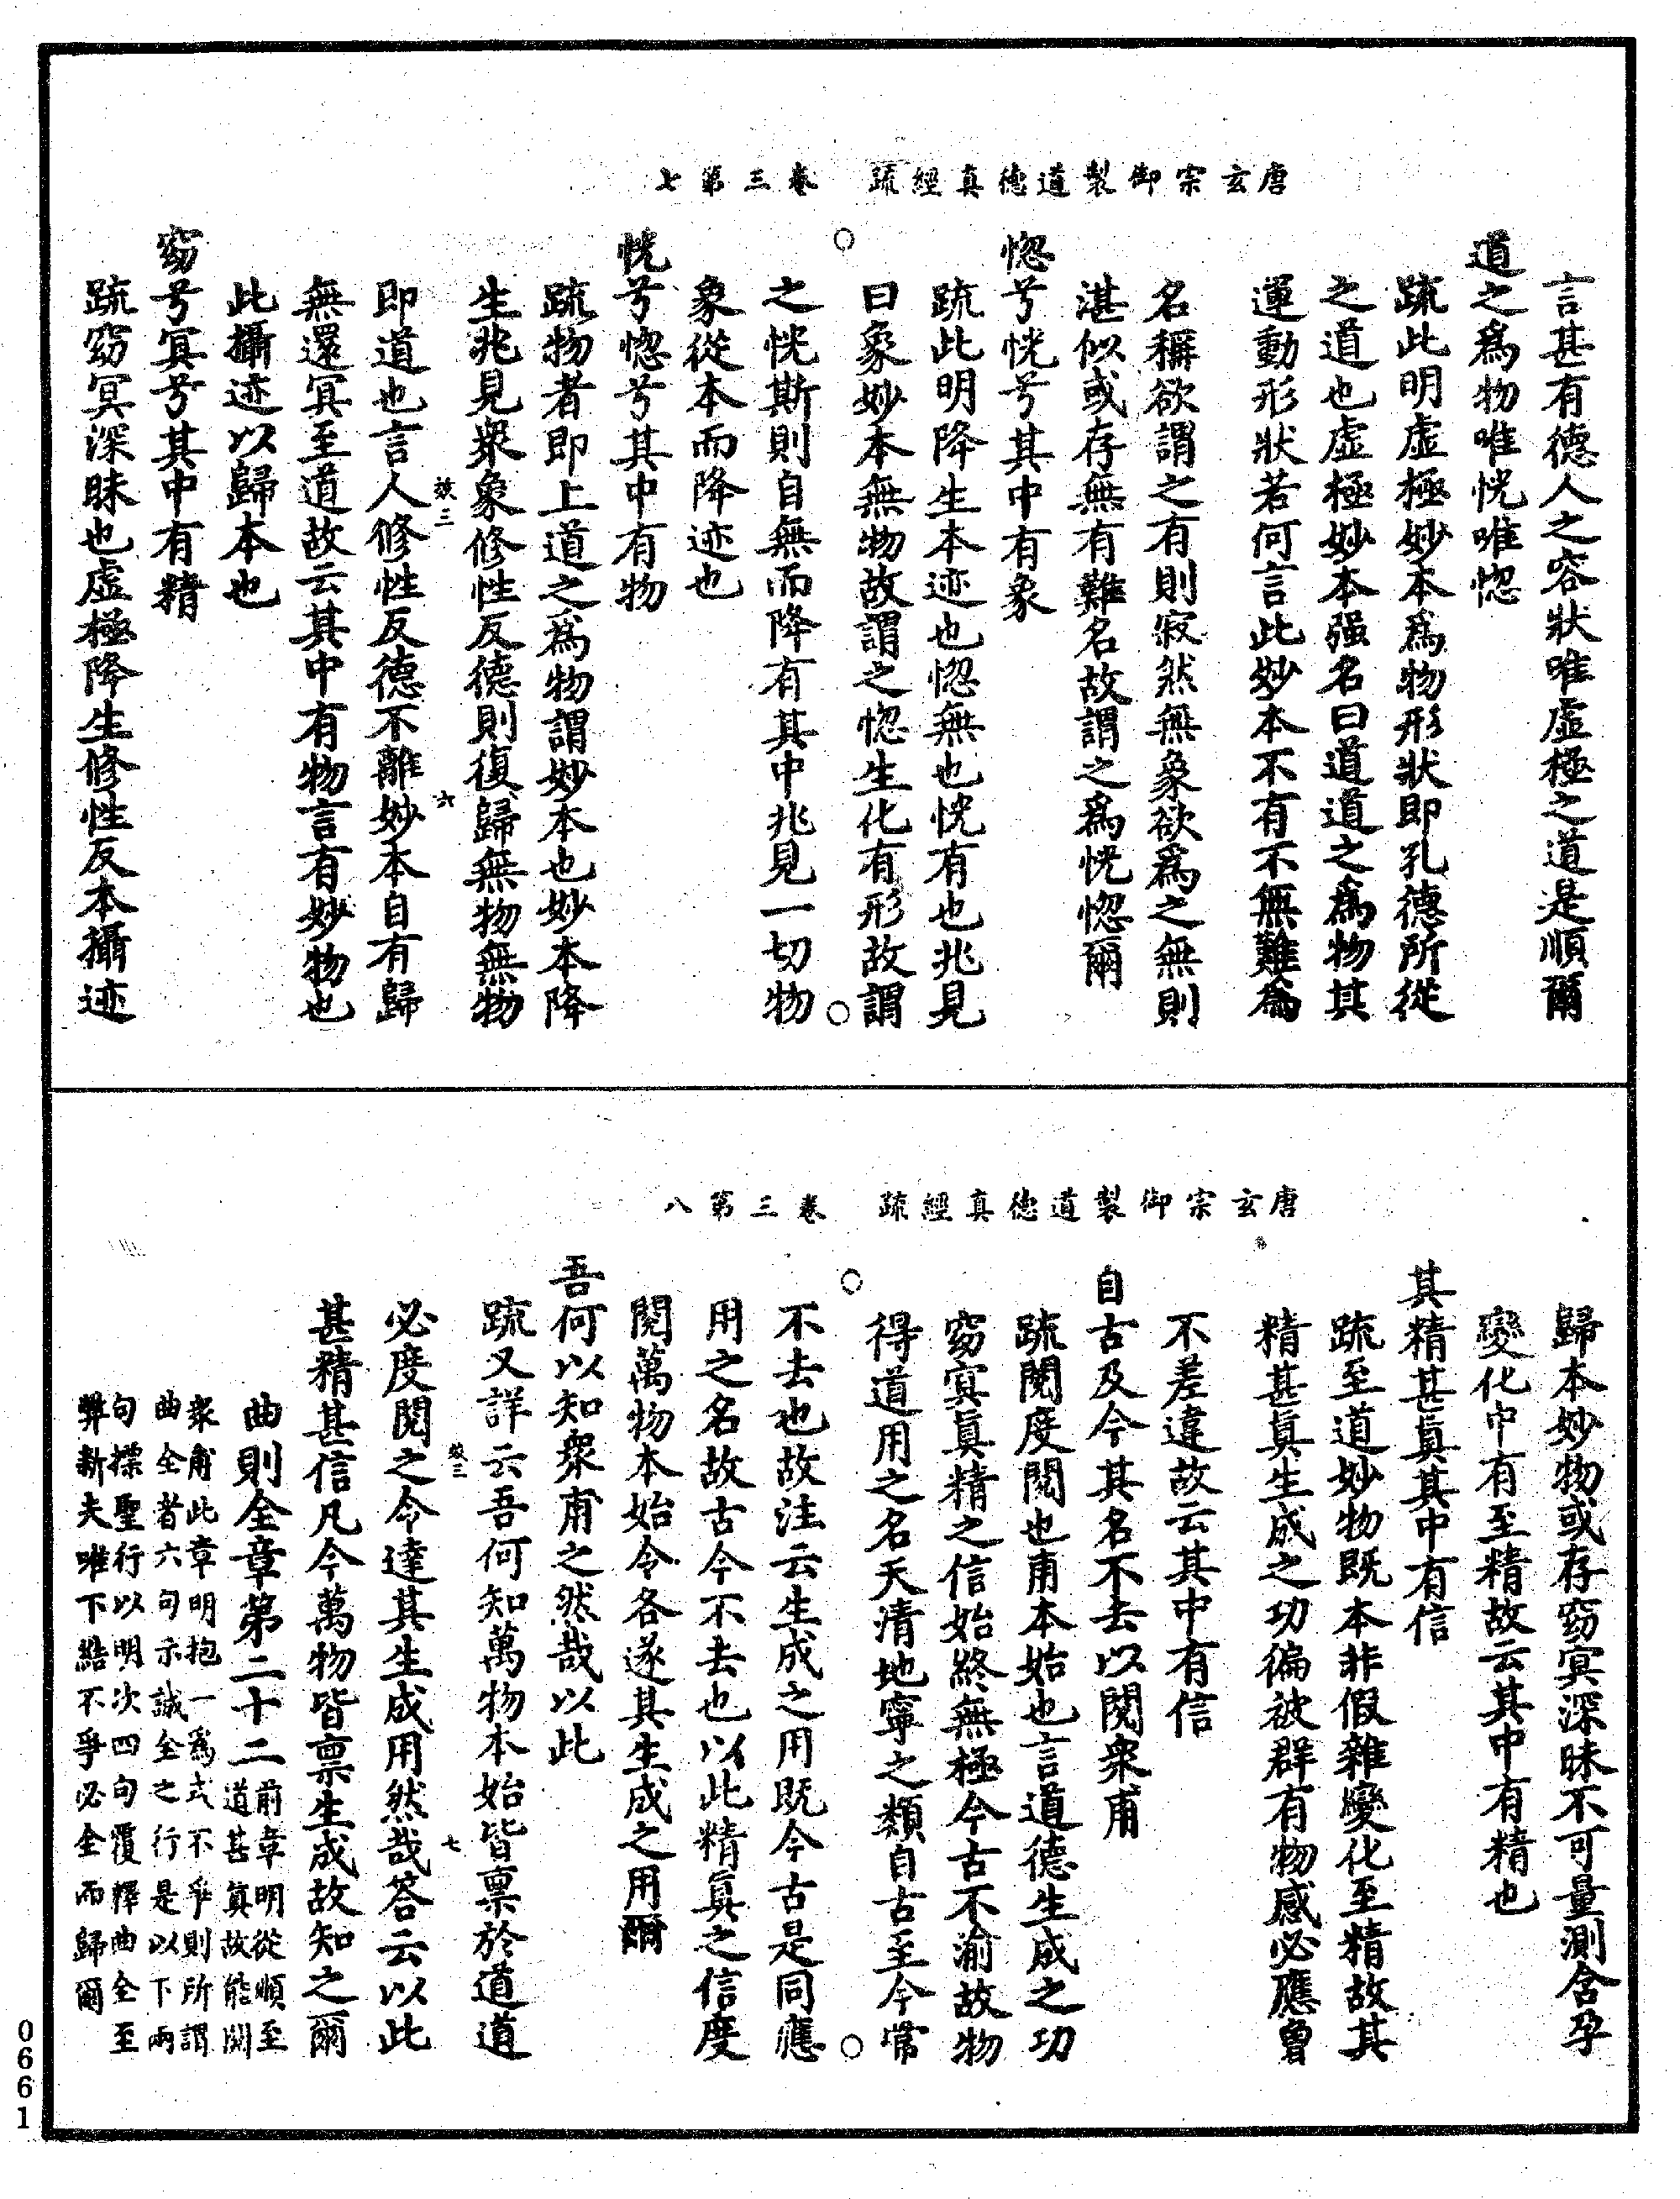 唐玄宗御製道德真經疏　卷三第七
言甚有德人之容狀唯虛極之道是順爾
道之爲物唯恍唯惚
疏此明虛極妙本爲物形狀即孔德所從
之道也虛極妙本强名曰道道之爲物其
運動形狀若何言此妙本不有不無難爲
名稱欲謂之有則寂然無象欲爲之無則
湛似或存無有難名故謂之爲恍惚爾
惚兮恍兮其中有象
疏此明降生本迹也惚無也恍有也兆見
曰象妙本無物故謂之惚生化有形故謂
之恍斯則自無而降有其中兆見一切物
象從本而降迹也
恍兮惚兮其中有物
疏物者即上道之爲物謂妙本也妙本降
生兆見衆象修性反德則復歸無物無物
效三　六
即道也言人修性反德不離妙本自有歸
無還冥至道故云其中有物言有妙物也
此攝迹以歸本也
窈兮冥兮其中有精
疏窈冥深昧也虛極降生修性反本攝迹
唐玄宗御製道德真經疏　卷三第八
歸本妙物或存窈冥深昧不可量測含孕
變化中有至精故云其中有精也
其精甚眞其中有信
疏至道妙物既本非假雜變化至精故其
精甚眞生成之功徧被群有物感必應曾
不差違故云其中有信
自古及今其名不去以閱衆甫
疏閱度閱也甫本始也言道德生成之功
窈冥眞精之信始終無極今古不渝故物
得道用之名天清地寧之類自古至今常
不去也故注云生成之用既今古是同應
用之名故古今不去也以此精眞之信度
閱萬物本始令各遂其生成之用爾
吾何以知衆甫之然哉以此
疏又詳云吾何知萬物本始皆禀於道道
效三　七
必度閱之令達其生成用然哉答云以此
甚精甚信凡今萬物皆禀生成故知之爾
曲則全章第二十二
前章明從順至
道甚眞故能閱
衆甫此章明抱一爲式不爭則所謂
曲全者六句示誠全之行是以下兩
句標聖行以明次四句覆釋曲全至
弊新夫唯下結不爭必全而歸爾
0661